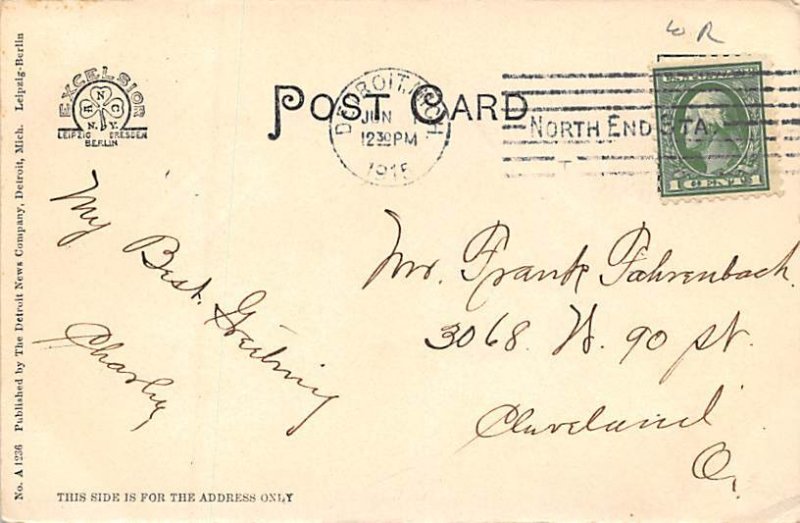 W R
POST CARD
EXCELSIOR
A N C
N.Y.
LEIPZIG DRESDEN
BERLIN
DETROIT, MICH
JUN
1230 PM
1915
NORTH END STA.
1 CENT 1
My
Best.
Greeting
Charley
Mr. Frank Fahrenbach.
3068. W. 90 St.
Cleveland
O.
No. A 1236 Published by The Detroit News Company, Detroit, Mich. Leipzig-Berlin
THIS SIDE IS FOR THE ADDRESS ONLY